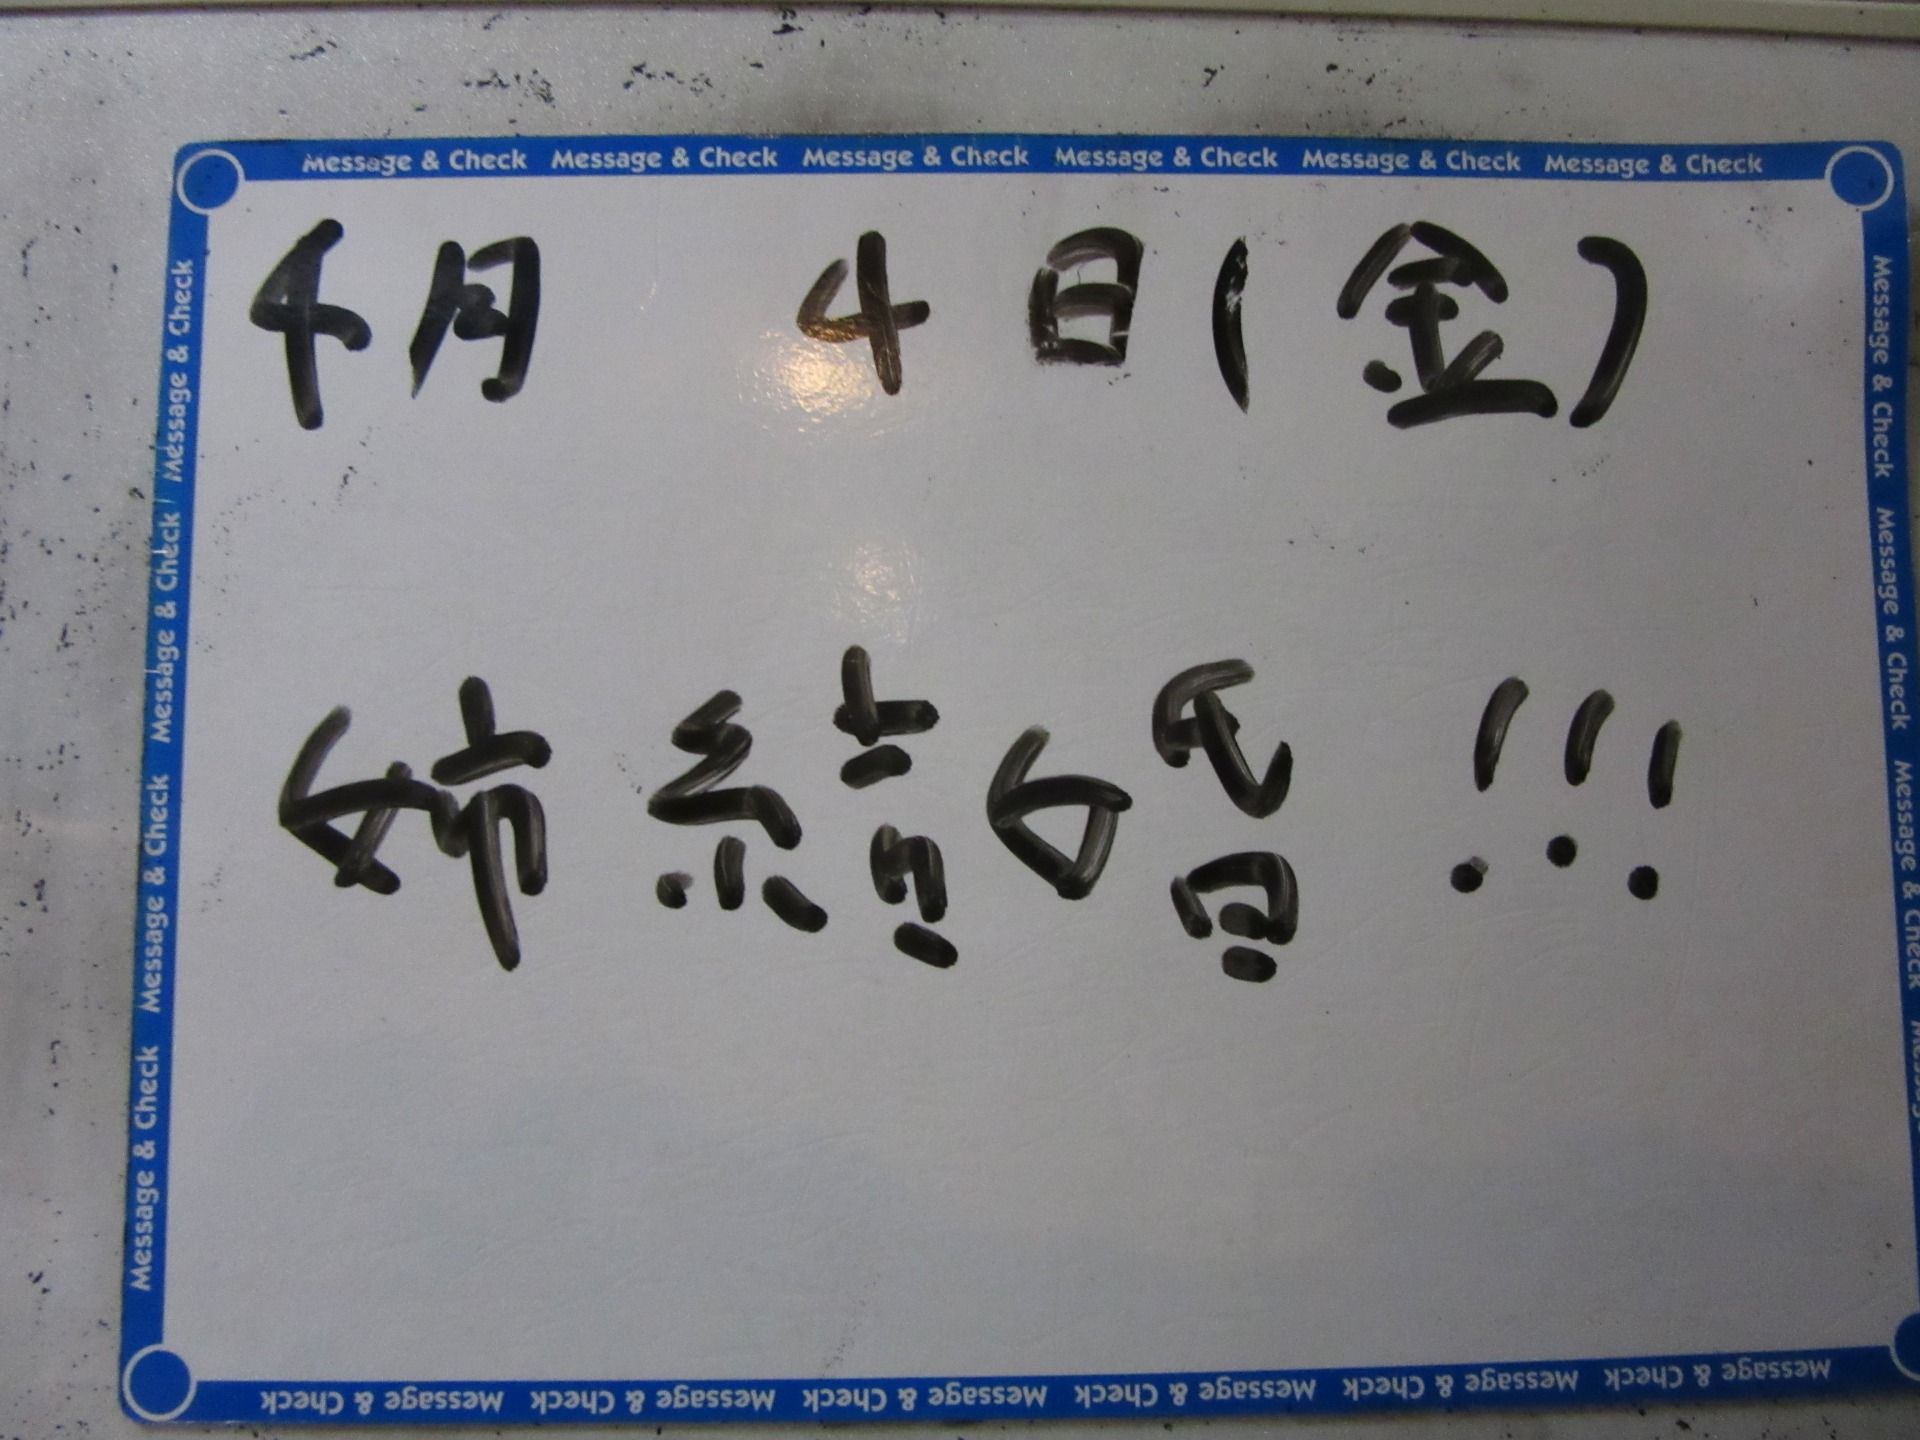 Message & Check Message & Check Message & Check Message & Check Message & Check Message & Check
4月 4日(金)
姉結婚!!!
Message & Check Message & Check Message & Check Message & Check
Message & Check Message & Check Message & Check Message & Check
Message & Check Message & Check Message & Check Message & Check Message & Check Message & Check